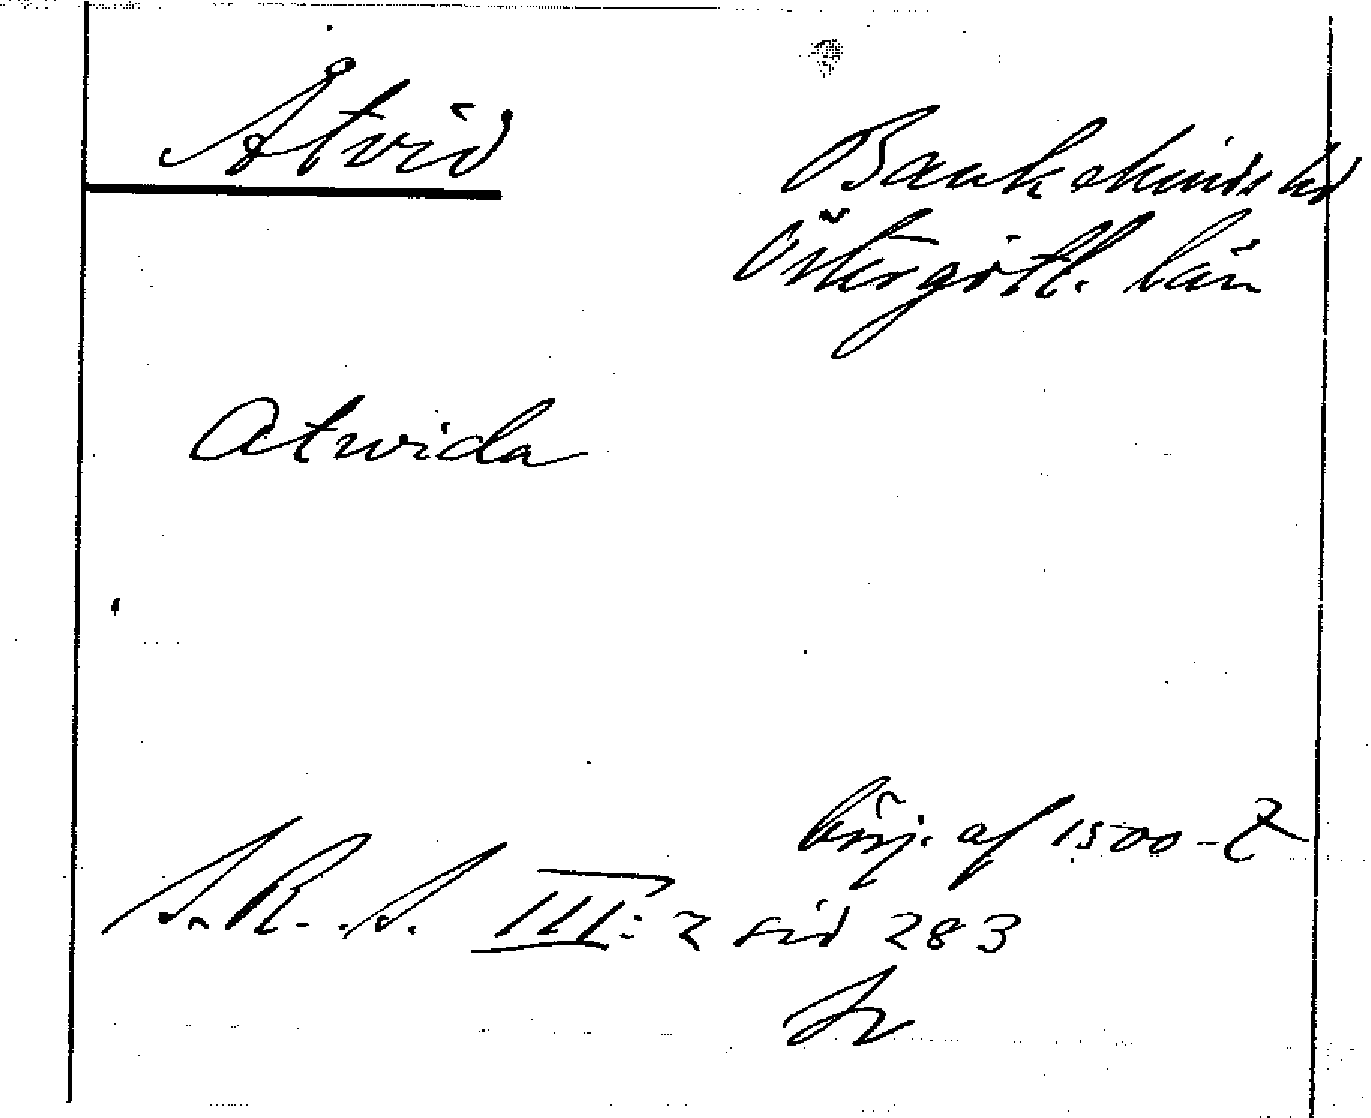 Åtvid
Bankekinds hd
Östergötl. län
Atwida
börj. af 1500-t
S.R.S. III: 2 sid 283